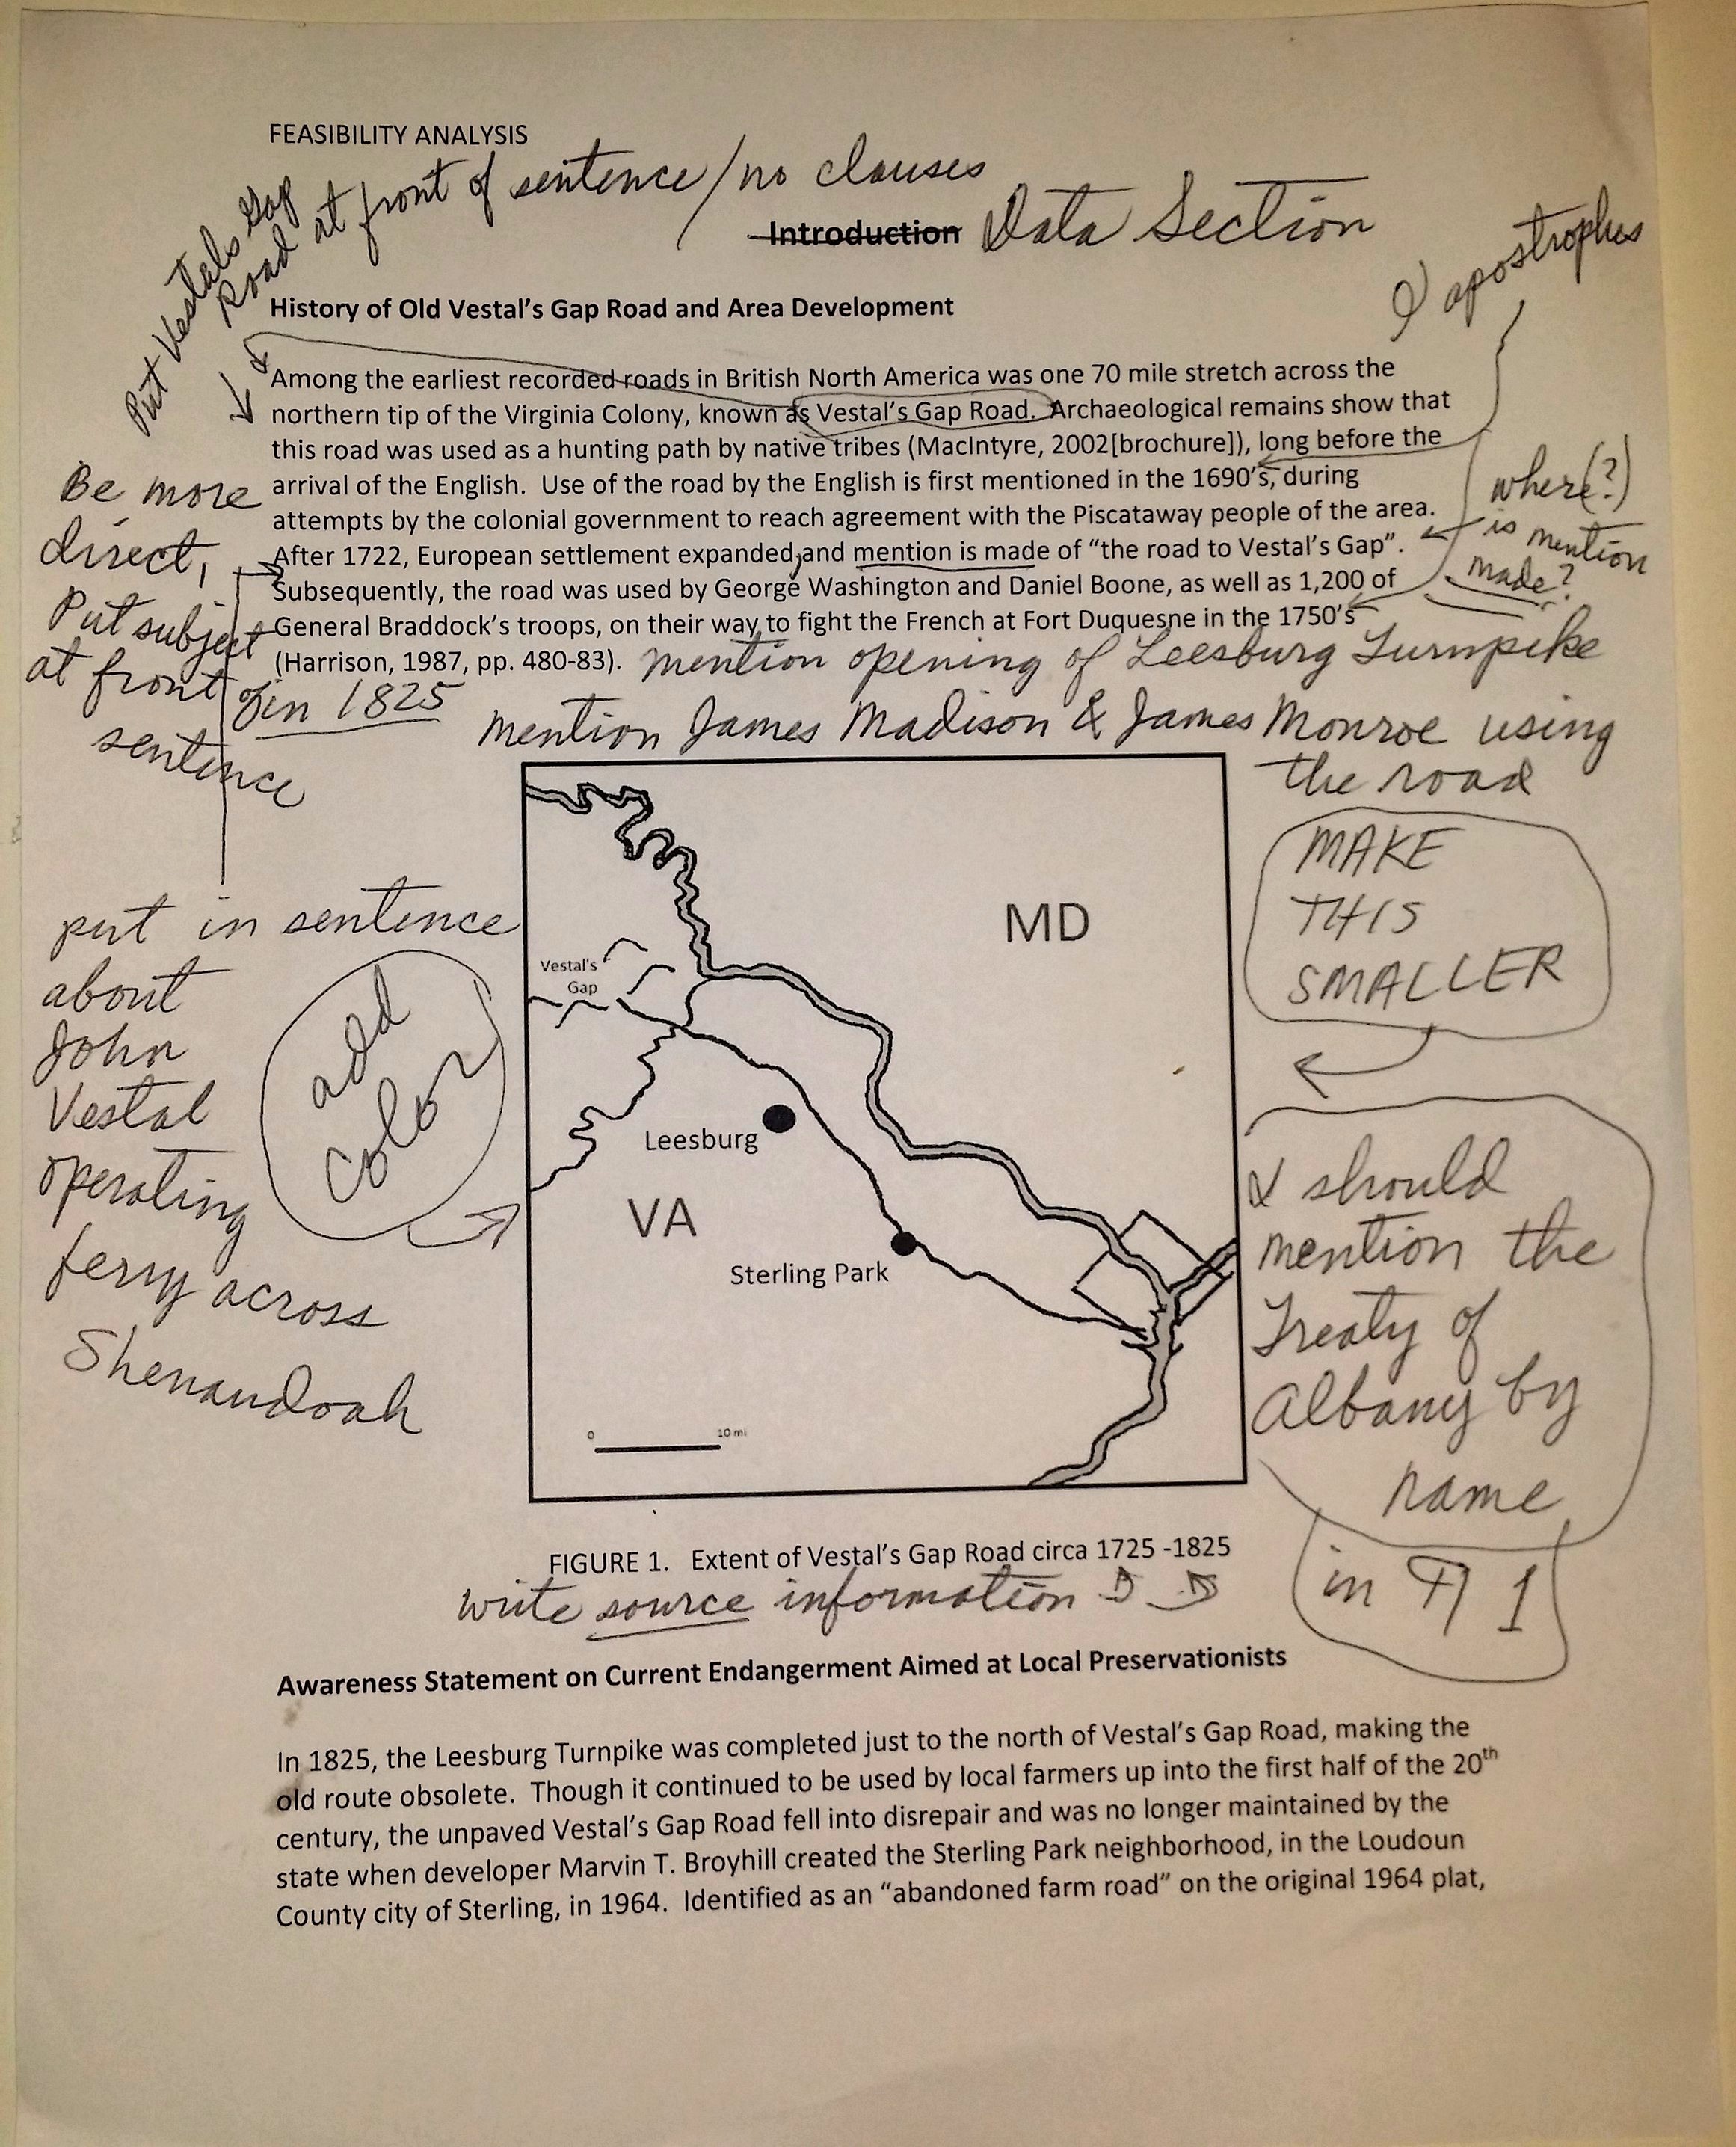 FEASIBILITY ANALYSIS
Put Vestals Gap
Road at front of sentence / no clauses
Introduction Data Section
apostrophes
History of Old Vestal's Gap Road and Area Development
Among the earliest recorded roads in British North America was one 70 mile stretch across the
northern tip of the Virginia Colony, known as Vestal's Gap Road. Archaeological remains show that
this road was used as a hunting path by native tribes (MacIntyre, 2002[brochure]), long before the
arrival of the English. Use of the road by the English is first mentioned in the 1690's, during
attempts by the colonial government to reach agreement with the Piscataway people of the area.
After 1722, European settlement expanded, and mention is made of "the road to Vestal's Gap".
Subsequently, the road was used by George Washington and Daniel Boone, as well as 1,200 of
General Braddock's troops, on their way to fight the French at Fort Duquesne in the 1750's
(Harrison, 1987, pp. 480-83).
Be more
direct,
Put subject
at front of
sentence
where(?)
is mention
made?
mention opening of Leesburg Turnpike
in 1825
mention James Madison & James Monroe using
the road
MAKE
THIS
SMALLER
put in sentence
about
John
Vestal
operating
ferry across
Shenandoah
add
color
MD
Vestal's
Gap
Leesburg
VA
Sterling Park
0 10 mi
I should
mention the
Treaty of
Albany by
name
in ¶ 1
FIGURE 1. Extent of Vestal's Gap Road circa 1725 -1825
write source information
Awareness Statement on Current Endangerment Aimed at Local Preservationists
In 1825, the Leesburg Turnpike was completed just to the north of Vestal's Gap Road, making the
old route obsolete. Though it continued to be used by local farmers up into the first half of the 20th
century, the unpaved Vestal's Gap Road fell into disrepair and was no longer maintained by the
state when developer Marvin T. Broyhill created the Sterling Park neighborhood, in the Loudoun
County city of Sterling, in 1964. Identified as an "abandoned farm road" on the original 1964 plat,